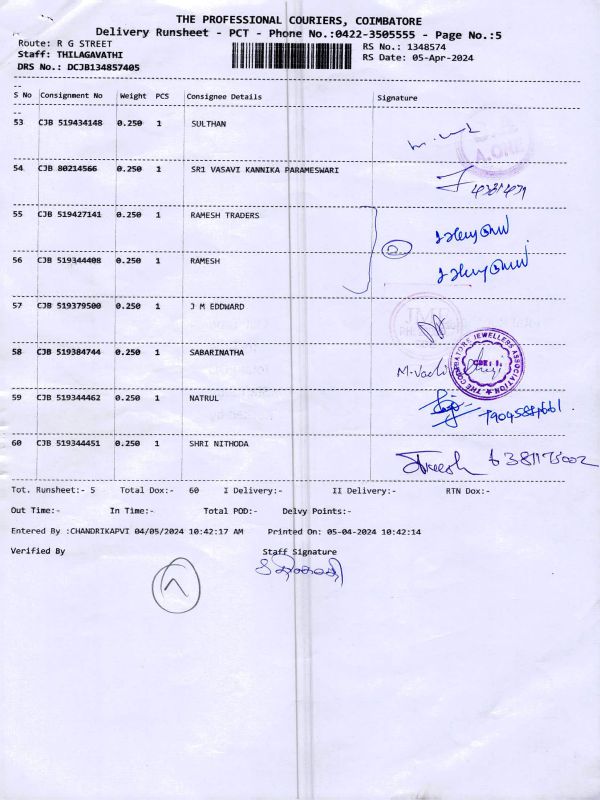 THE PROFESSIONAL COURIERS, COIMBATORE
Delivery Runsheet - PCT - Phone No.:0422-3505555 - Page No.:5
Route: R G STREET
RS No.: 1348574
Staff: THILAGAVATHI
RS Date: 05-Apr-2024
DRS No.: DCJB134857405
S No Consignment No Weight PCS Consignee Details Signature
53 CJB 519434148 0.250 1 SULTHAN
A.ONE
54 CJB 80214566 0.250 1 SR1 VASAVI KANNIKA PARAMESWARI
55 CJB 519427141 0.250 1 RAMESH TRADERS
56 CJB 519344408 0.250 1 RAMESH
57 CJB 519379500 0.250 1 J M EDDWARD
58 CJB 519384744 0.250 1 SABARINATHA
THE COIMBATORE JEWELLERS ASSOCIATION
CBE: 1.
59 CJB 519344462 0.250 1 NATRUL
60 CJB 519344451 0.250 1 SHRI NITHODA
6381175002
Tot. Runsheet:- 5 Total Dox:- 60 I Delivery:- II Delivery:- RTN Dox:-
Out Time:- In Time:- Total POD:- Delvy Points:-
Entered By :CHANDRIKAPVI 04/05/2024 10:42:17 AM Printed On: 05-04-2024 10:42:14
Verified By Staff Signature